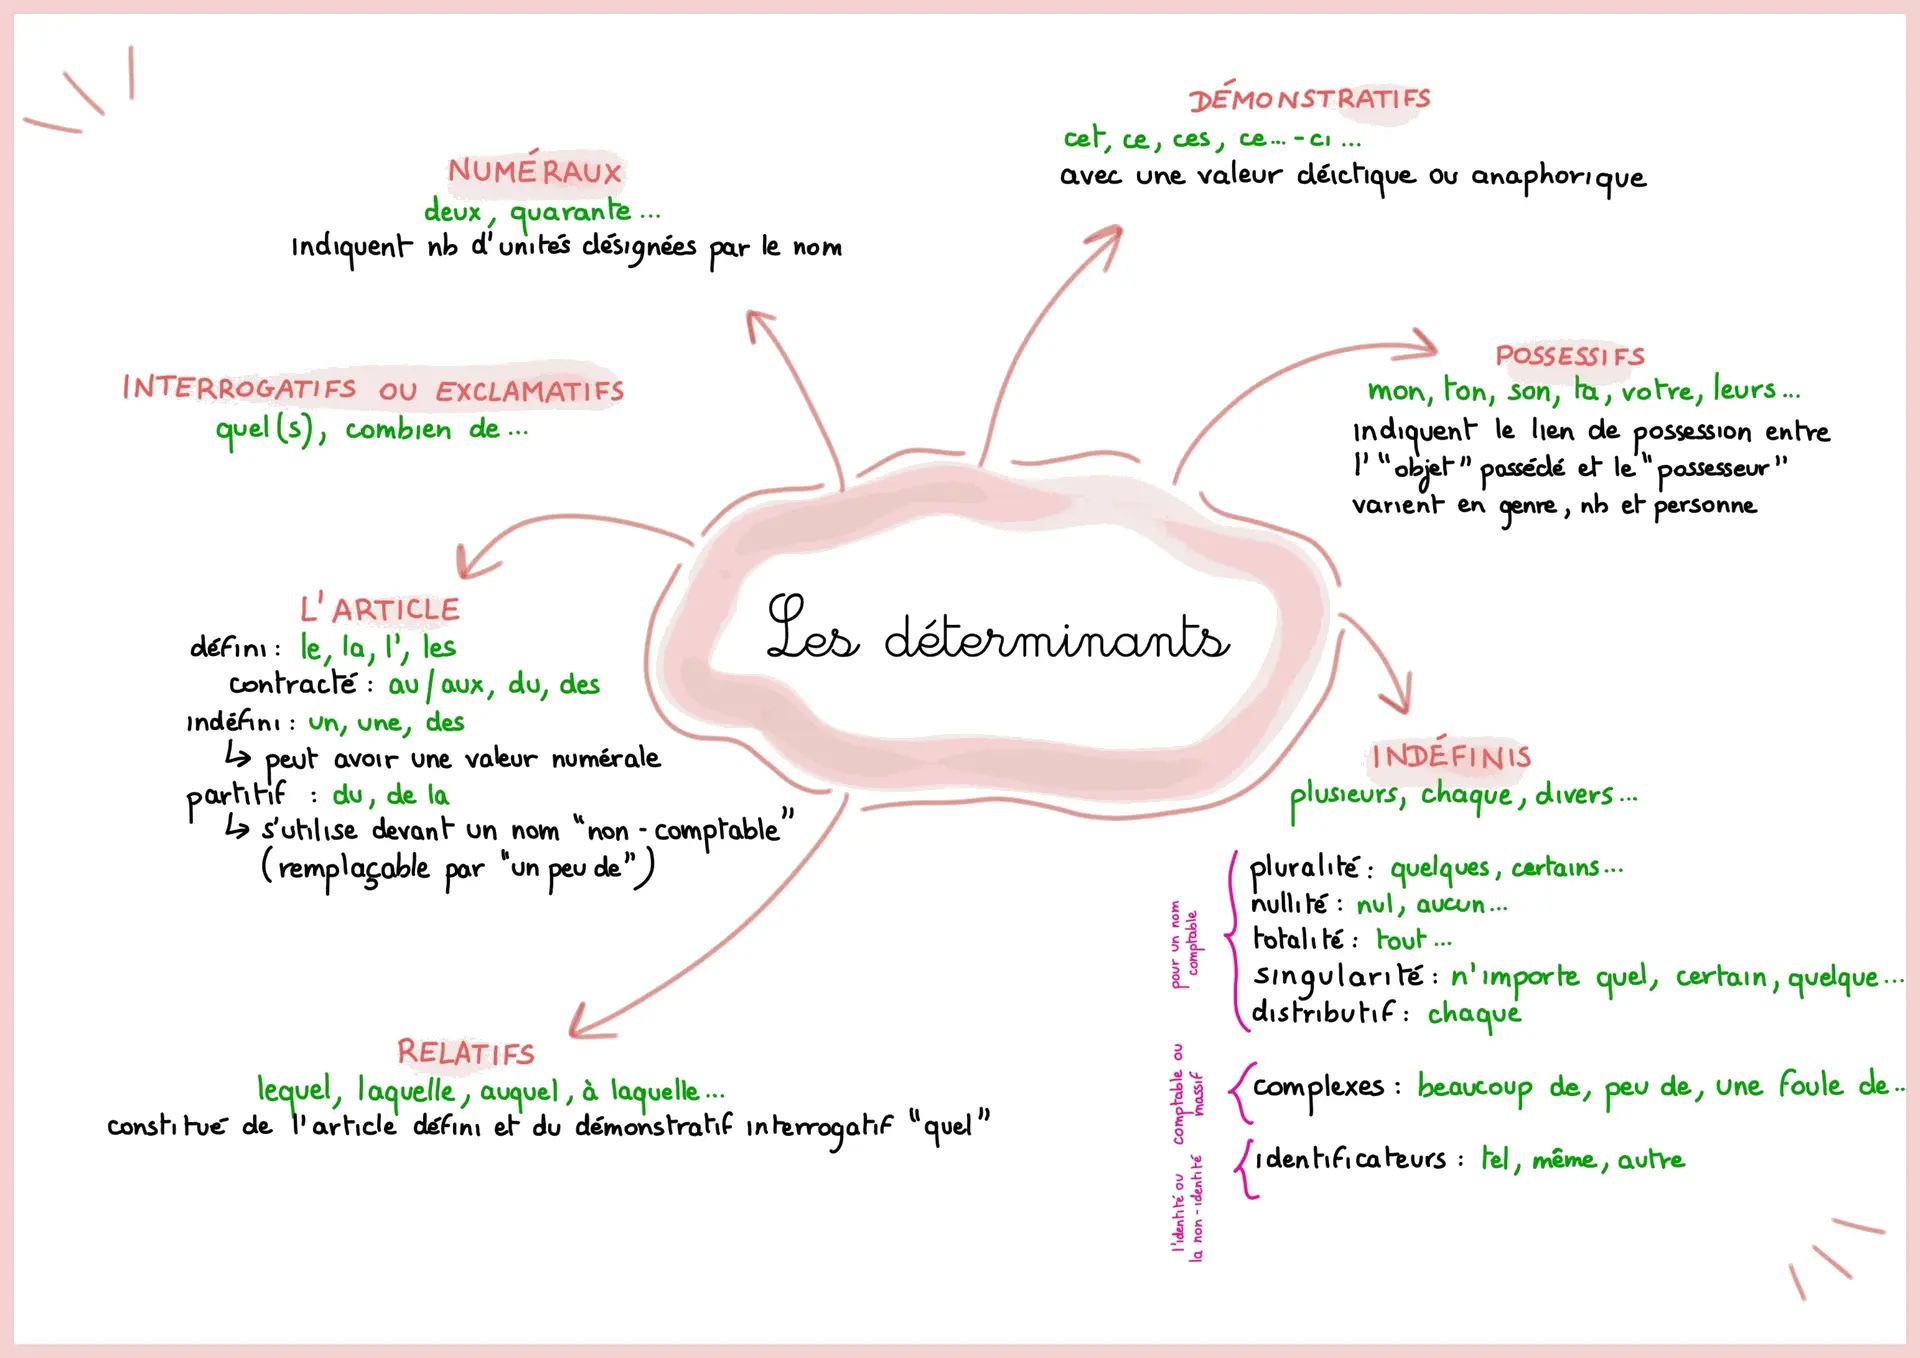 DÉMONSTRATIFS
cet, ce, ces, ce...-ci ...
avec une valeur déictique ou anaphorique
NUMÉRAUX
deux, quarante ...
indiquent nb d'unités désignées par le nom
POSSESSIFS
mon, ton, son, ta, votre, leurs...
indiquent le lien de possession entre
l'"objet" possédé et le "possesseur"
varient en genre, nb et personne
INTERROGATIFS OU EXCLAMATIFS
quel(s), combien de ...
L'ARTICLE
défini : le, la, l', les
contracté : au/aux, du, des
indéfini : un, une, des
↳ peut avoir une valeur numérale
partitif : du, de la
↳ s'utilise devant un nom "non-comptable"
(remplaçable par "un peu de")
Les déterminants
INDÉFINIS
plusieurs, chaque, divers ...
pour un nom
comptable
pluralité : quelques, certains...
nullité : nul, aucun...
totalité : tout ...
singularité : n'importe quel, certain, quelque...
distributif : chaque
comptable ou
massif
complexes : beaucoup de, peu de, une foule de...
l'identité ou
la non-identité
identificateurs : tel, même, autre
RELATIFS
lequel, laquelle, auquel, à laquelle...
constitué de l'article défini et du démonstratif interrogatif "quel"